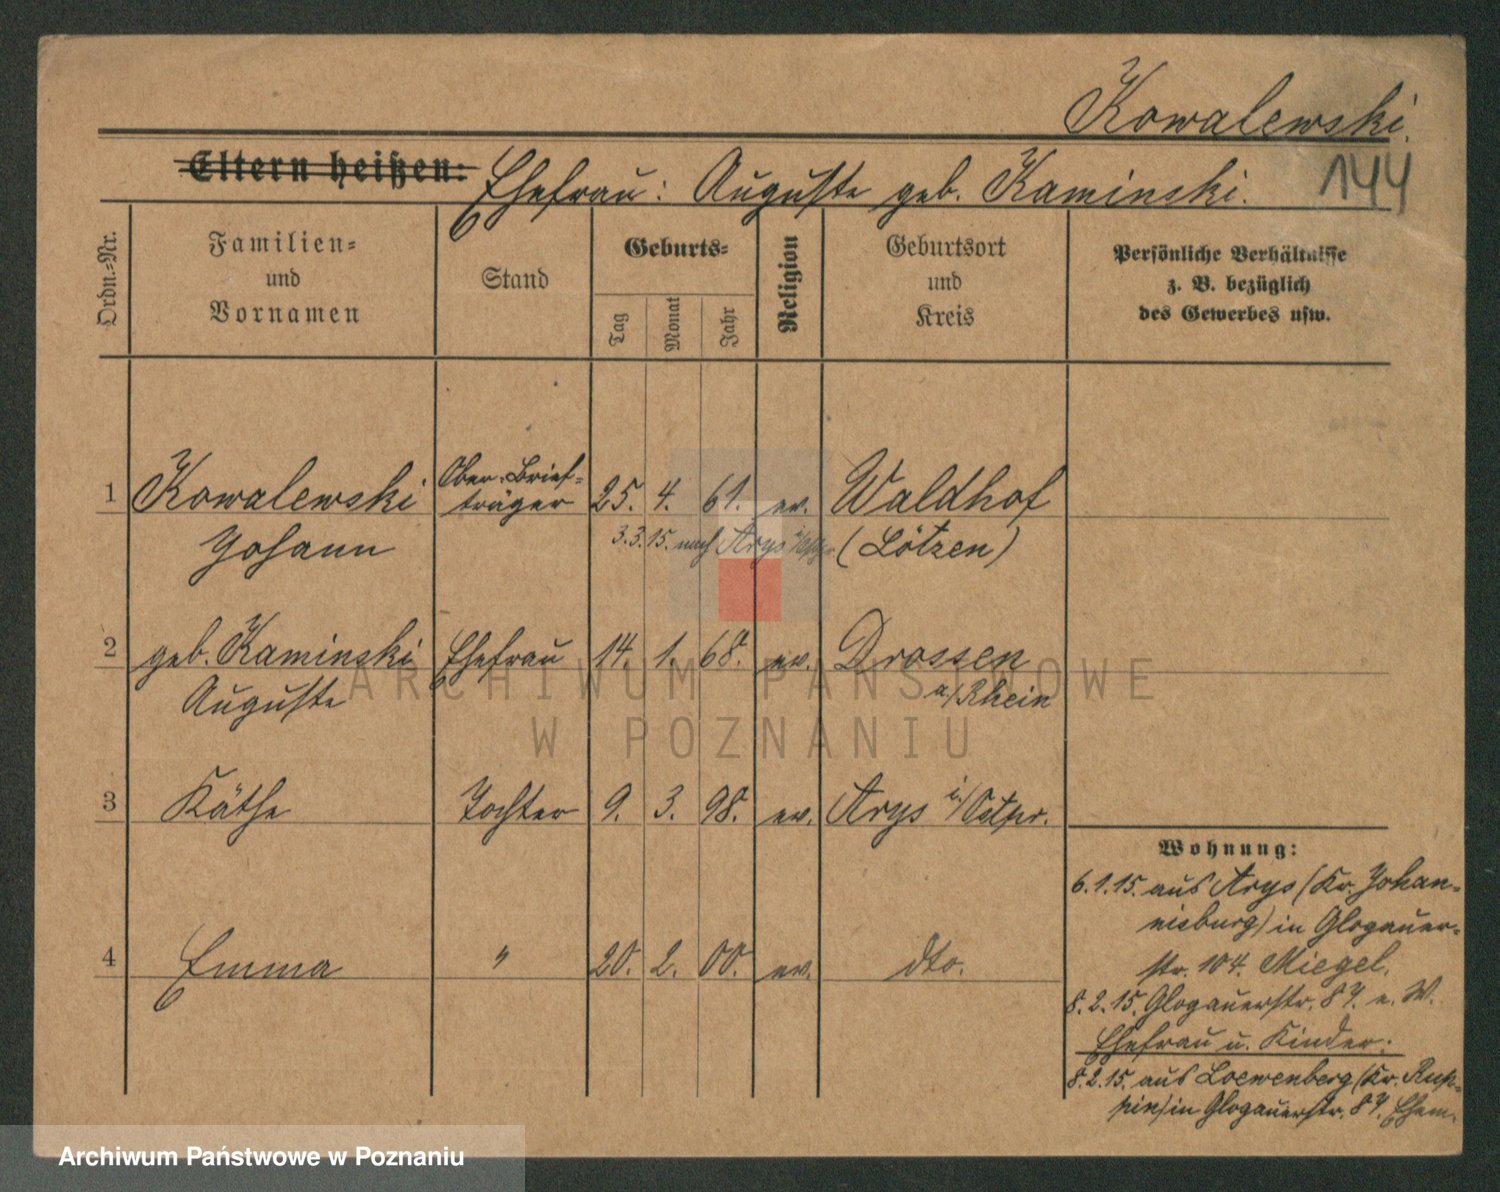 Kowalewski.
Eltern heißen: Ehefrau: Auguste geb. Kaminski. 144
Ordn.=Nr.
Familien=
und
Vornamen
Stand
Geburts=
Tag
Monat
Jahr
Religion
Geburtsort
und
Kreis
Persönliche Verhältnisse
z. B. bezüglich
des Gewerbes usw.
1 Kowalewski Ober-Brief= 25. 4. 61. ev. Waldhof
träger
Johann 3.3.15. nach Arys (Lötzen)
2 geb. Kaminski Ehefrau 14. 1. 68. ev. Drossen
Auguste a/Rhein
3 Käthe Tochter 9. 3. 98. ev. Arys i/Ostpr.
4 Emma " 20. 2. 00. ev. dto.
Wohnung:
6.1.15. aus Arys (Kr. Johan=
nisburg) in Glogauer=
str. 104. Miegel.
8.2.15. Glogauerstr. 87. e. W.
Ehefrau u. Kinder:
8.2.15. aus Loewenberg (Kr. Rup=
pin) in Glogauerstr. 87. Ehem.
ARCHIWUM PAŃSTWOWE
W POZNANIU
Archiwum Państwowe w Poznaniu